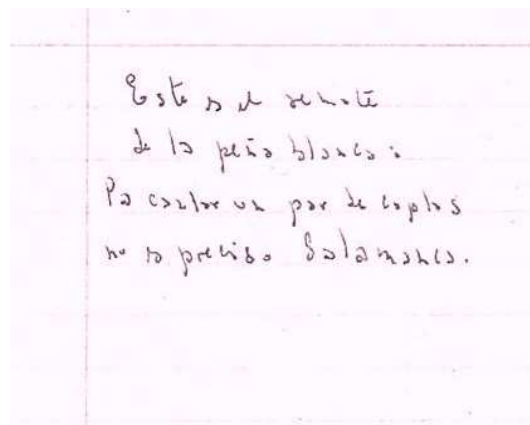 Este es el remate
de la peña blanca:
Pa cantar un par de coplas
no es preciso Salamanca.